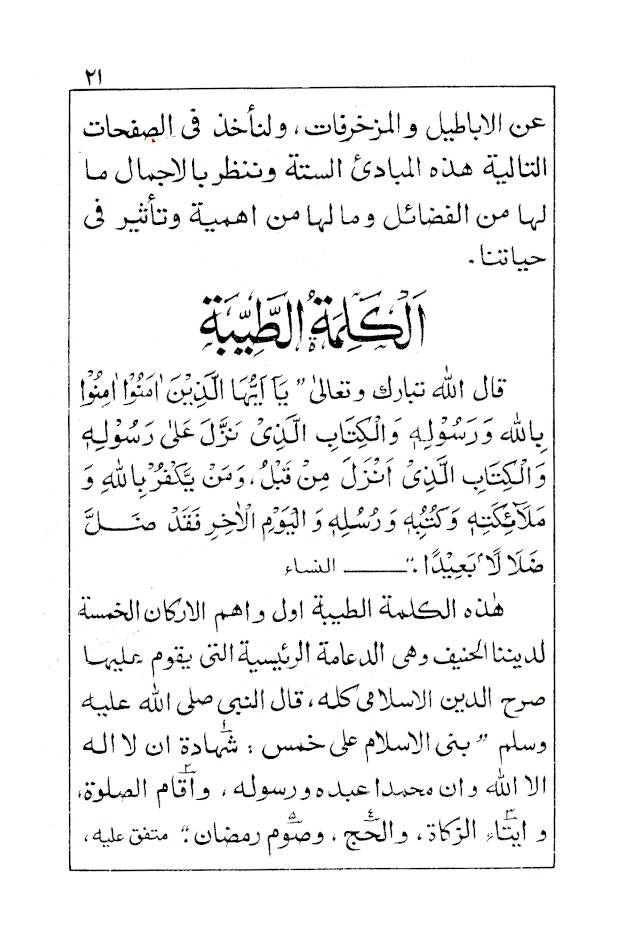 ٢١
عن الاباطيل والمزخرفات، ولنأخذ فى الصفحات
التالية هذه المبادئ الستة وننظر بالاجمال ما
لها من الفضائل ومالها من اهمية وتأثير فى
حياتنا.
اَلْكَلِمَةُ الطَّيِّبَةُ
قال الله تبارك وتعالىٰ ”يَآ اَيُّهَا الَّذِيْنَ اٰمَنُوْٓا اٰمِنُوْا
بِاللهِ وَرَسُوْلِهٖ وَالْكِتَابِ الَّذِىْ نَزَّلَ عَلىٰ رَسُوْلِهٖ
وَالْكِتَابِ الَّذِىْ اَنْزَلَ مِنْ قَبْلُ، وَمَنْ يَّكْفُرْ بِاللهِ وَ
مَلَآئِكَتِهٖ وَكُتُبِهٖ وَرُسُلِهٖ وَالْيَوْمِ الْاٰخِرِ فَقَدْ ضَلَّ
ضَلَا لًا ۢبَعِيْدًا.“ــــــ النساء
هٰذه الكلمة الطيبة اول واهم الاركان الخمسة
لديننا الحنيف وهى الدعامة الرئيسية التى يقوم عليها
صرح الدين الاسلامى كله، قال النبى صلى الله عليه
وسلم ”بنى الاسلام على خمس: ١شهادة ان لا اله
الا الله وان محمدا عبده ورسوله، ٢واقام الصلوة،
و ٣ايتاء الزكاة، ٤والحج، ٥وصوم رمضان.“ متفق عليه،